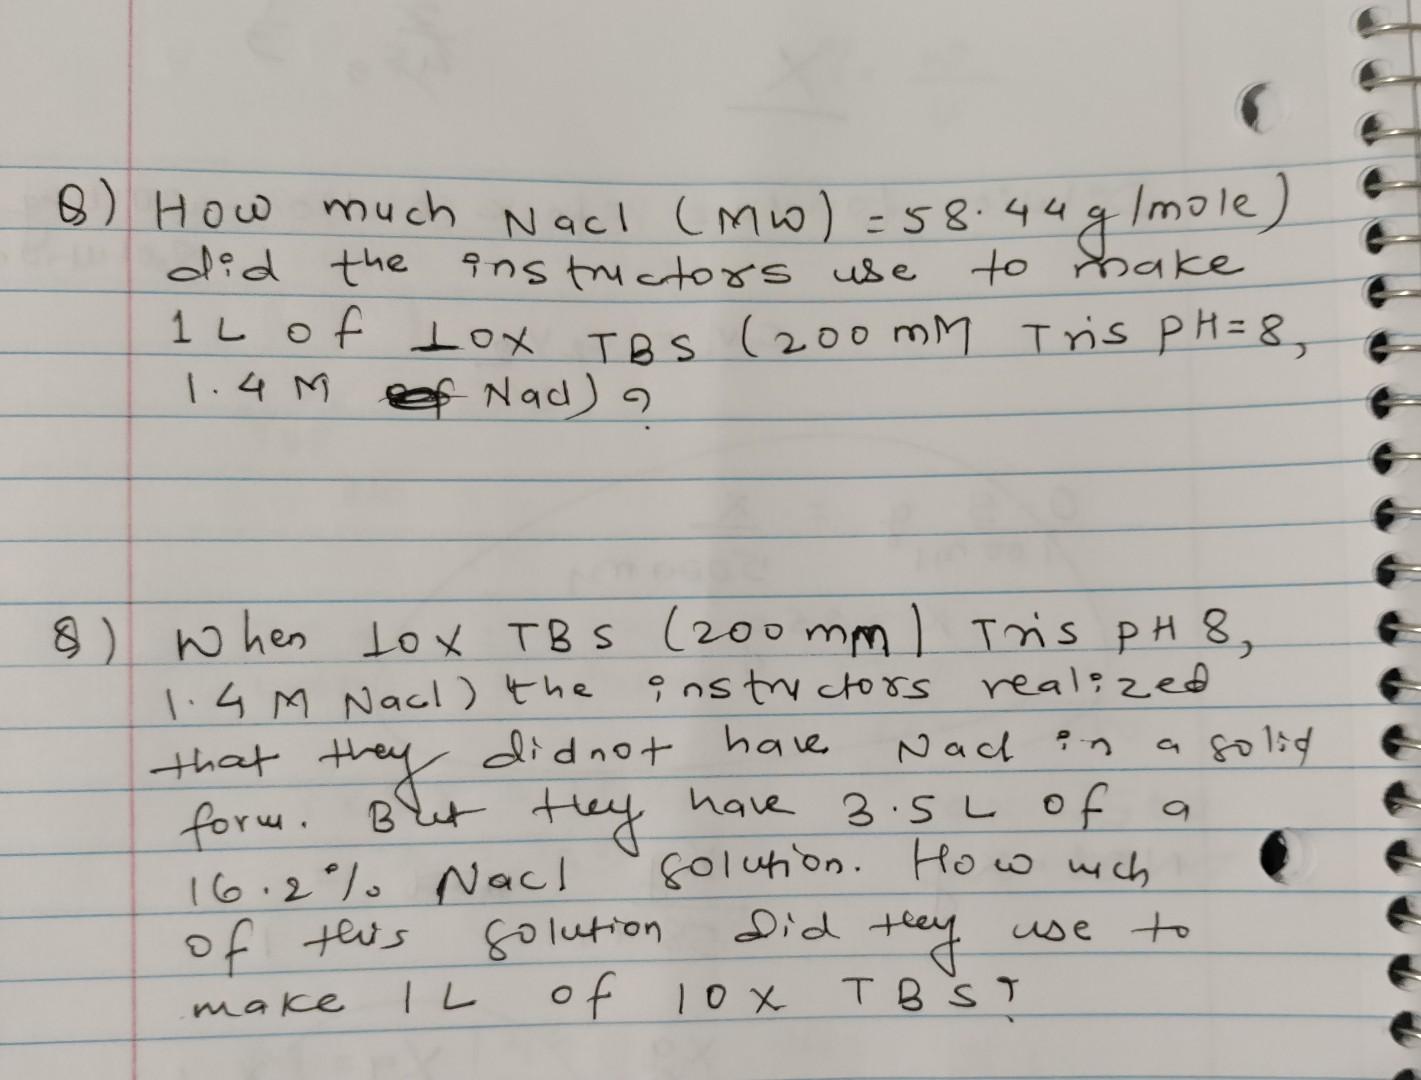 Q) How much Nacl (MW) = 58.44 g/mole)
did the instructors use to make
1 L of 10x TBS (200 mM Tris pH=8,
1.4 M Nacl) ?
Q) When 10x TBS (200 mm) Tris pH 8,
1.4 M Nacl) the instructors realized
that they didnot have Nacl in a solid
form. But they have 3.5 L of a
16.2% Nacl solution. How uch
of this solution Did they use to
make 1 L of 10x TBS?